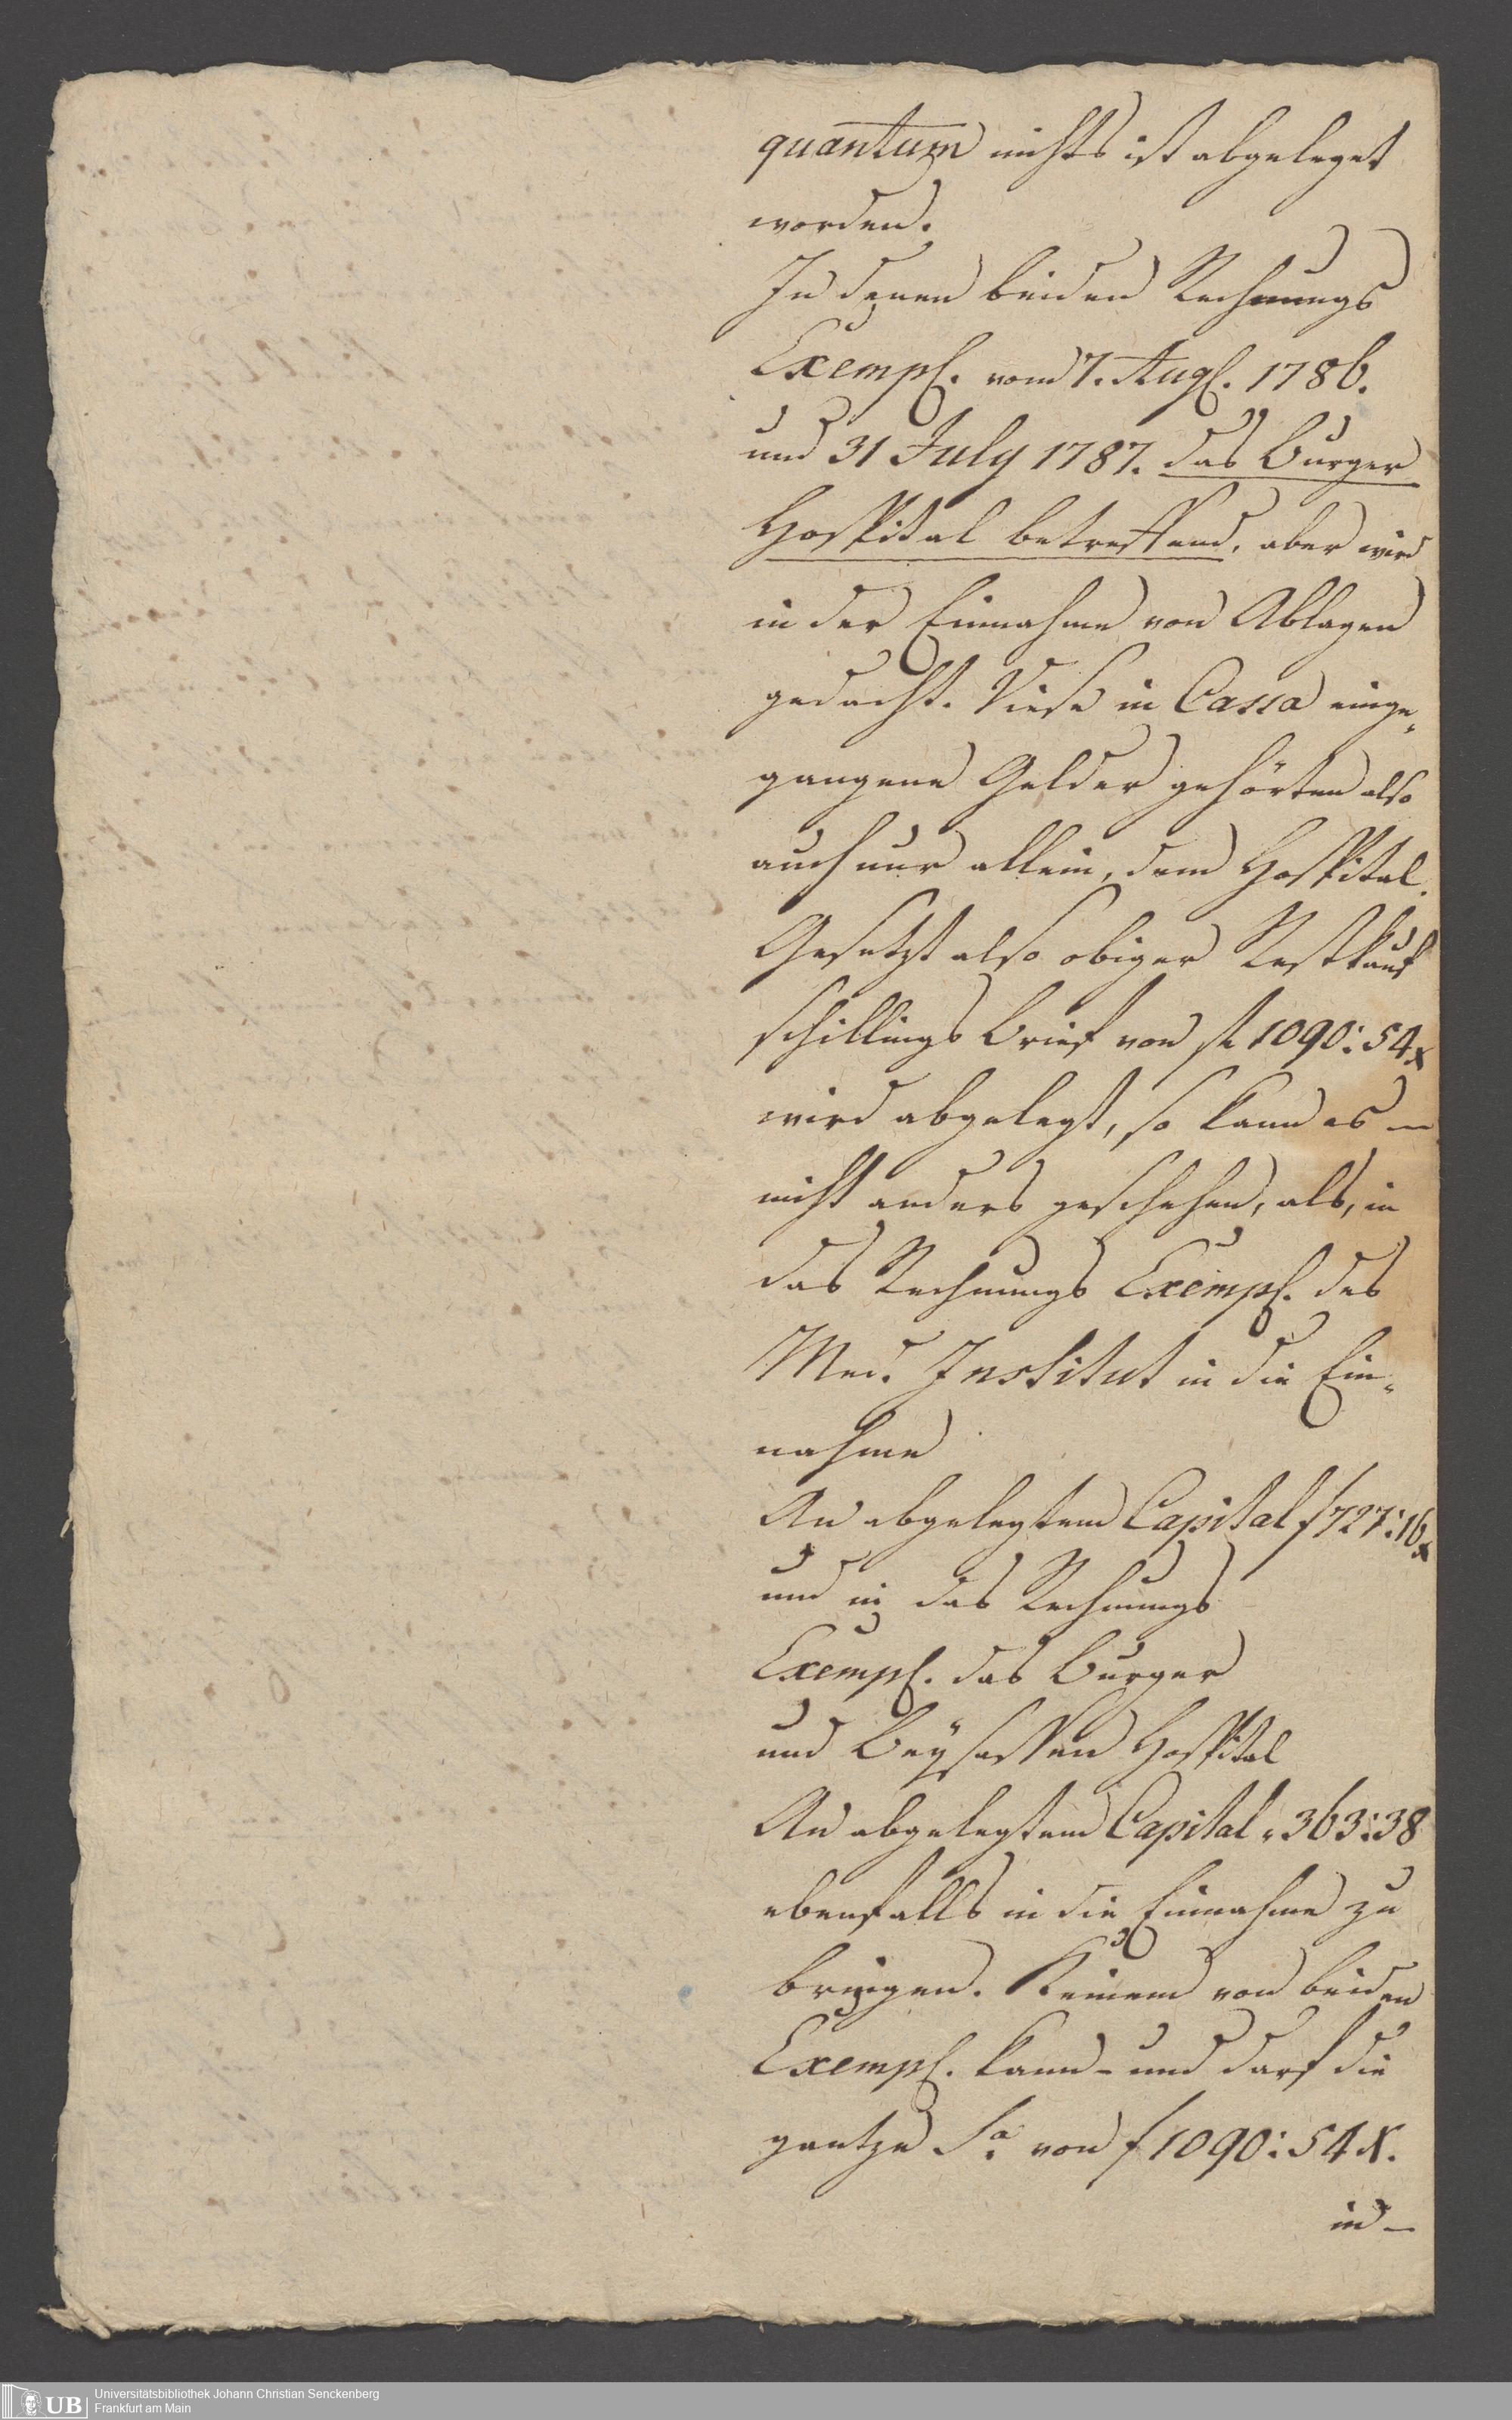 quantum nichts ist abgeleget
worden.
In denen beiden Rechnungs
Exempl. vom 7. Augl. 1786.
und 31 July 1787. das Burger
Hospital betreffend, aber wird
in der Einnahme von Ablagen
gedacht. Diese in Cassa einge„
gangene Gelder gehörten also
auch nur allein, dem Hospital.
Gesetzt also obiger Restkauf
schillings Brief von f 1090:54x
wird abgelegt, so kann es —
nicht anders geschehen, als, in
das Rechnungs Exempl. des
Med. Institut in die Ein„
nahme
An abgelegtem Capital f 727:16x
und in das Rechnungs
Exempl. das Burger
und Beysassen Hospital
An abgelegtem Capital „ 363:38
ebenfalls in die Einnahme zu
bringen. Keinem von beiden
Exempl. kann - und darf die
gantze Sa. von f 1090:54 X.
in —
Universitätsbibliothek Johann Christian Senckenberg
Frankfurt am Main
UB